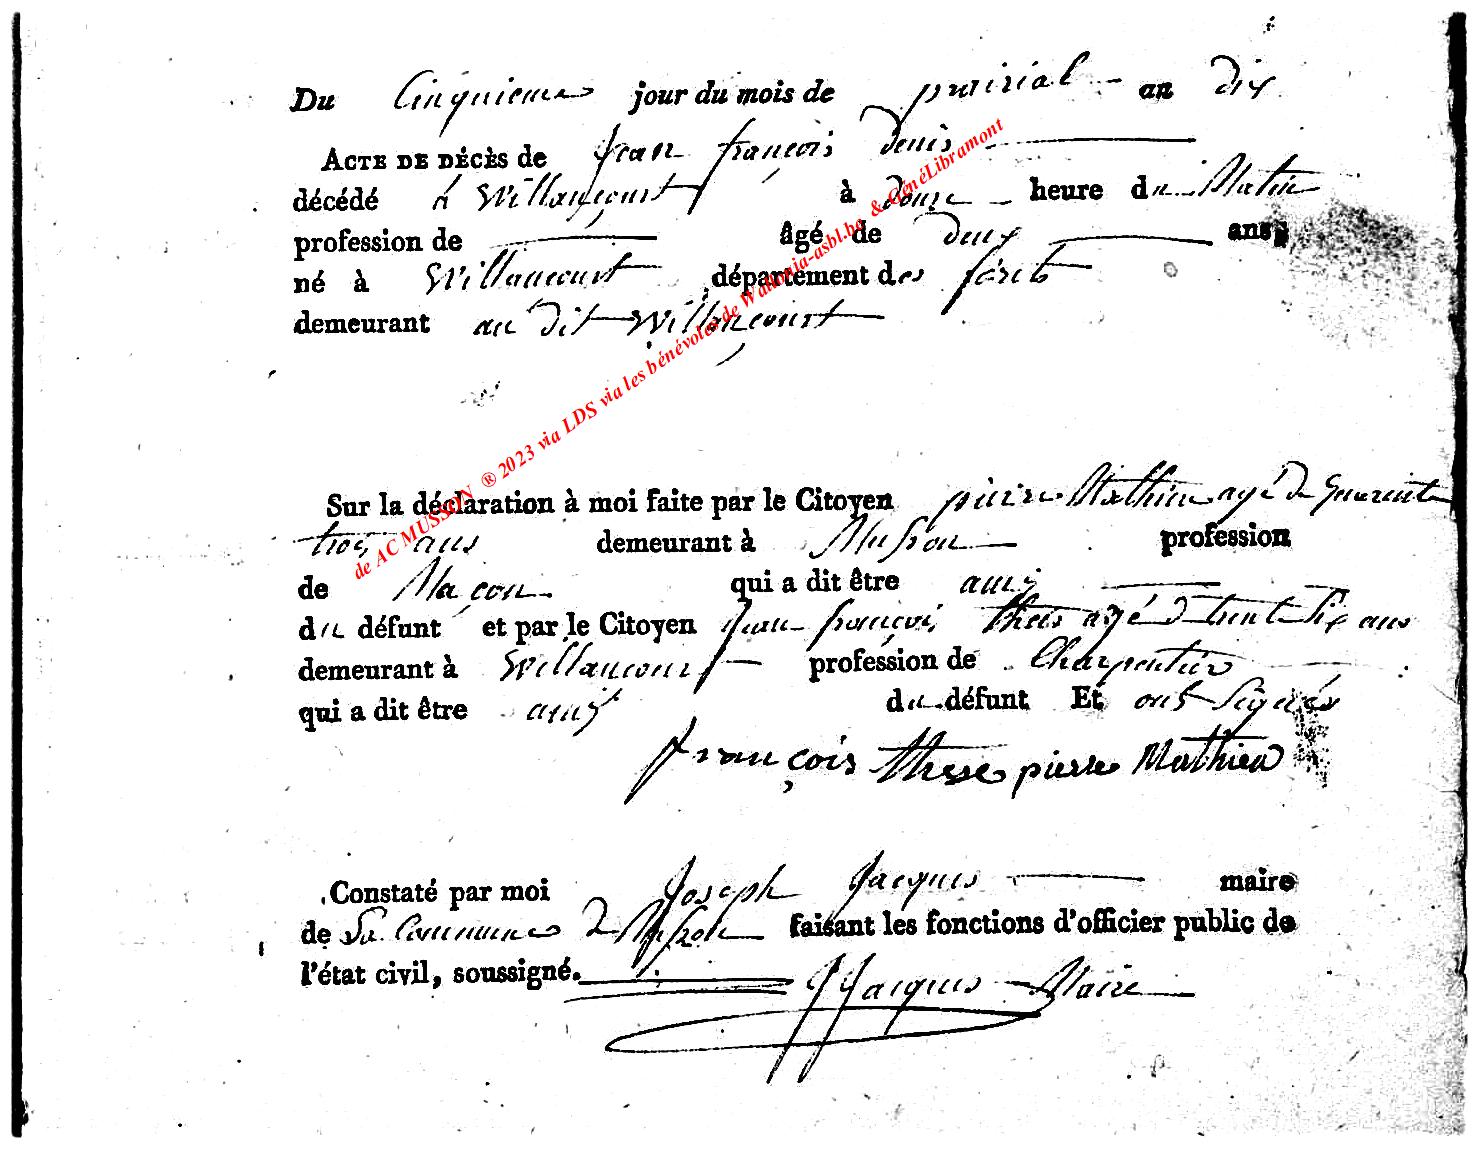 Du Cinquieme jour du mois de prairial an dix
ACTE DE DÉCÈS de Jean françois denis
décédé à Willancourt à douze heure du Matin
profession de âgé de deux ans
né à Willancourt département des forêts
demeurant au dit Willancourt
Sur la déclaration à moi faite par le Citoyen pierre Mathieu agé de quarente
trois ans demeurant à Musson profession
de Maçon qui a dit être amis
du défunt et par le Citoyen Jean françois agé de trente six ans
demeurant à Willancourt profession de Charpentier
qui a dit être amis du défunt Et ont Signés
françois these pierre Mathieu
Constaté par moi Joseph Jacques maire
de La Commune de Musson faisant les fonctions d'officier public de
l'état civil, soussigné.
JJacques Maire
de AC MUSSON ® 2023 via LDS via les bénévoles de Wallonia-asbl.be & GénéLibramont